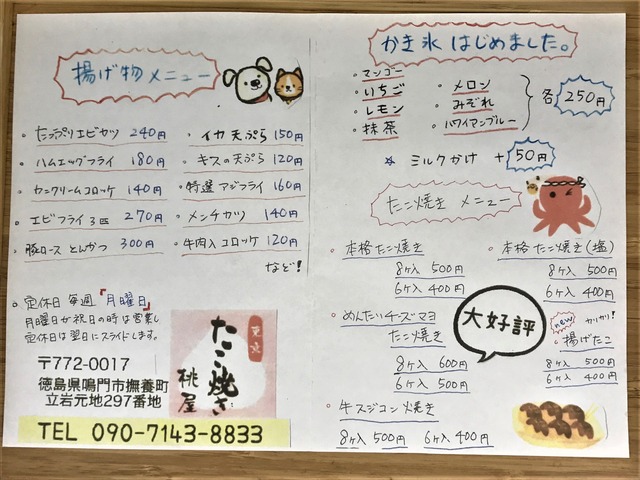 揚げ物メニュー
・たっぷりエビカツ 240円
・ハムエッグフライ 180円
・カニクリームコロッケ 140円
・エビフライ3匹 270円
・豚ロースとんかつ 300円
・イカ天ぷら 150円
・キスの天ぷら 120円
・特選アジフライ 160円
・メンチカツ 140円
・牛肉入コロッケ 120円
など!
・定休日 毎週『月曜日』
月曜日が祝日の時は営業し
定休日は翌日にスライドします。
〒772-0017
徳島県鳴門市撫養町
立岩元地297番地
TEL 090-7143-8833
たこ焼き
桃屋
かき氷はじめました。
・マンゴー
・いちご
・レモン
・抹茶
・メロン
・みぞれ
・ハワイアンブルー
各250円
☆ ミルクかけ +50円
たこ焼きメニュー
・本格たこ焼き
8ヶ入 500円
6ヶ入 400円
・めんたいチーズマヨ
たこ焼き
8ヶ入 600円
6ヶ入 500円
・牛スジコン焼き
8ヶ入 500円 6ヶ入 400円
・本格たこ焼き(塩)
8ヶ入 500円
6ヶ入 400円
大好評
new
カリカリ!
・揚げたこ
8ヶ入 500円
6ヶ入 400円